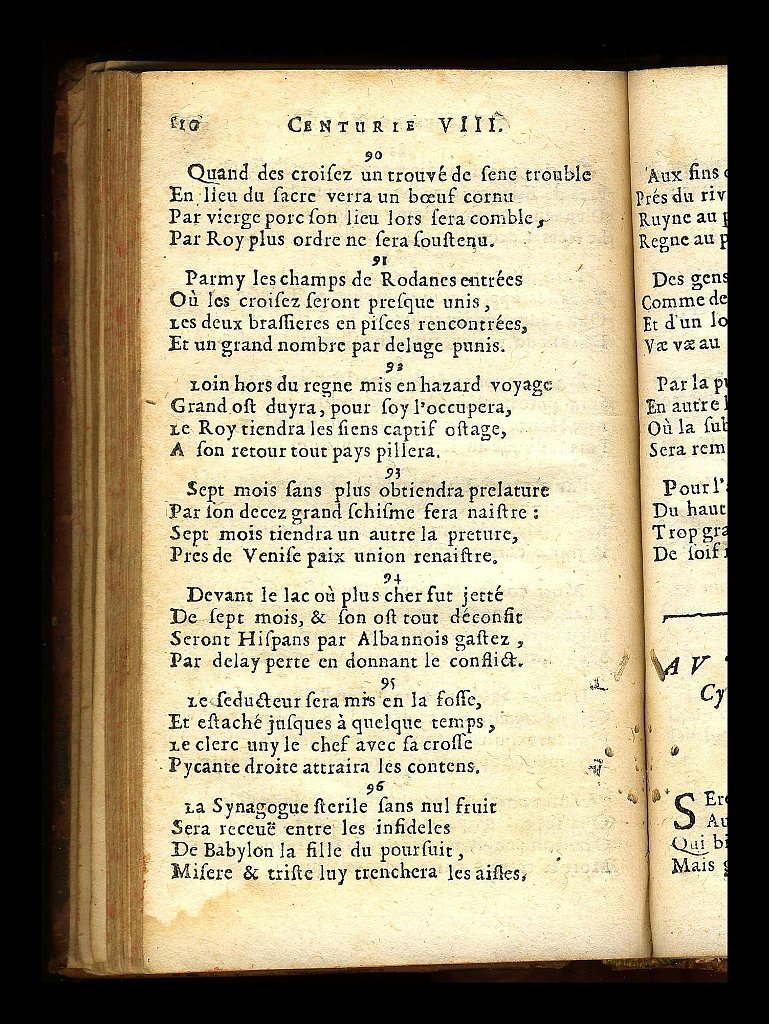 110 CENTURIE VIII.
90
Quand des croiſez un trouvé de ſene trouble
En lieu du ſacre verra un bœuf cornu
Par vierge porc ſon lieu lors ſera comble,
Par Roy plus ordre ne ſera ſouſtenu.
91
Parmy les champs de Rodanes entrées
Où les croiſez ſeront preſque unis,
Les deux braſſieres en piſces rencontrées,
Et un grand nombre par deluge punis.
92
Loin hors du regne mis en hazard voyage
Grand oſt duyra, pour ſoy l'occupera,
Le Roy tiendra les ſiens captif oſtage,
A ſon retour tout pays pillera.
93
Sept mois ſans plus obtiendra prelature
Par ſon decez grand ſchiſme fera naiſtre :
Sept mois tiendra un autre la preture,
Pres de Veniſe paix union renaiſtre.
94
Devant le lac où plus cher fut jetté
De ſept mois, & ſon oſt tout déconfit
Seront Hiſpans par Albannois gaſtez,
Par delay perte en donnant le conflict.
95
Le ſeducteur ſera mis en la foſſe,
Et eſtaché juſques à quelque temps,
Le clerc uny le chef avec ſa croſſe
Pycante droite attraira les contens.
96
La Synagogue ſterile ſans nul fruit
Sera receuë entre les infideles
De Babylon la fille du pourſuit,
Miſere & triſte luy trenchera les aiſles.
Aux fins
Prés du riv
Ruyne au
Regne au
Des gens
Comme de
Et d'un lo
Væ væ au
Par la p
En autre
Où la ſub
Sera rem
Pour l'
Du haut
Trop gra
De ſoif
AV
Cy
SEr
Au
Qui bi
Mais